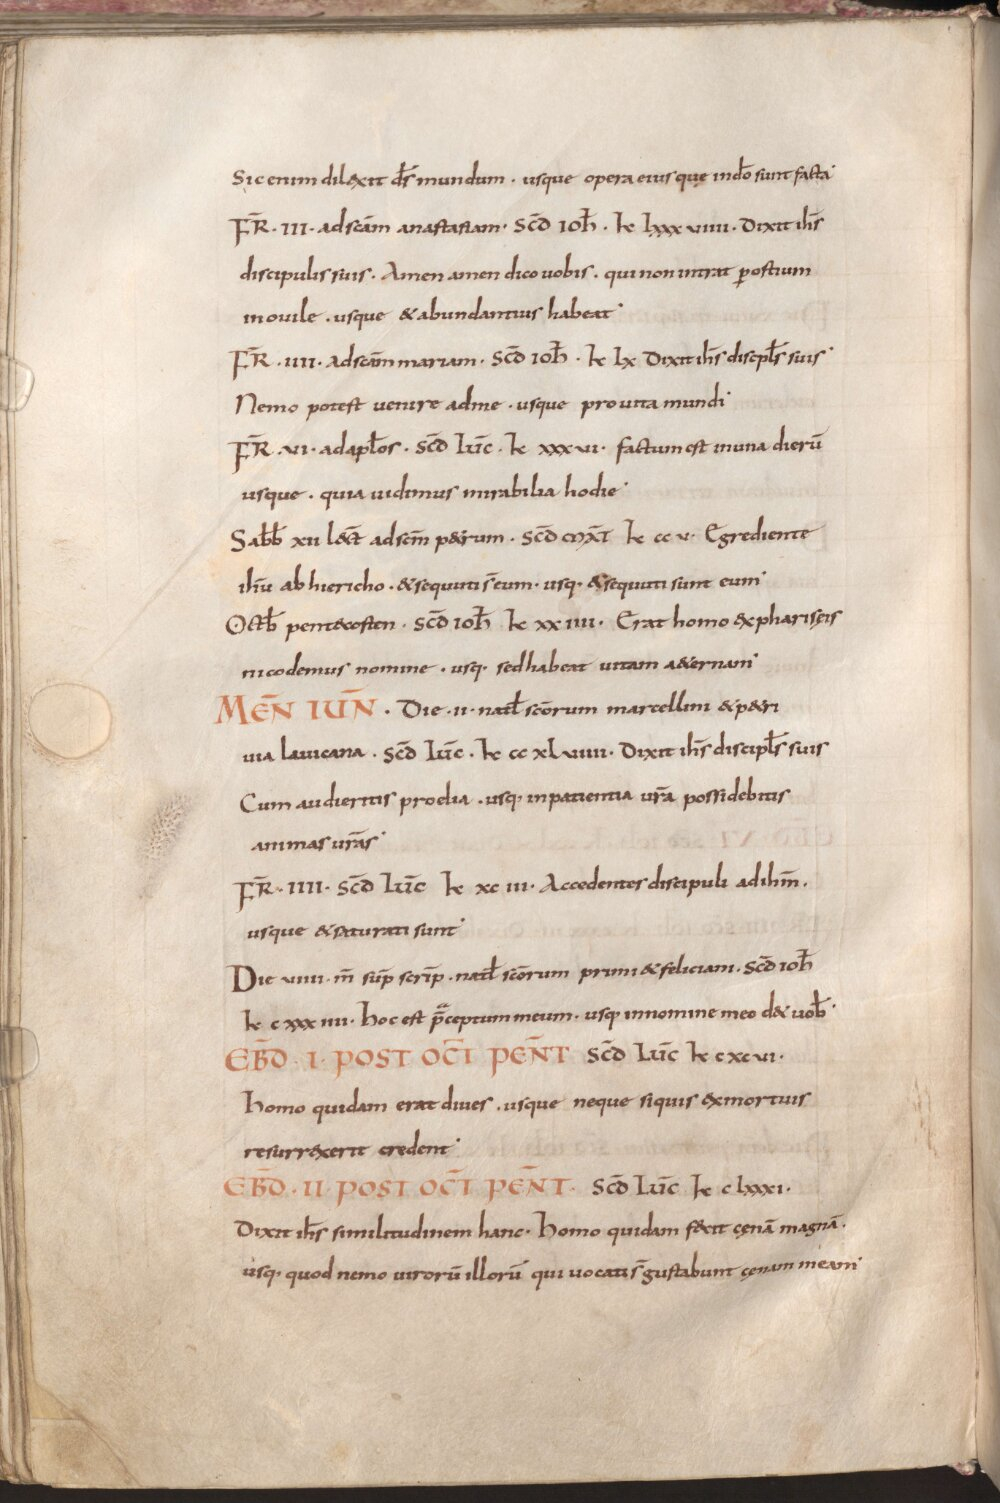 Sic enim dilexit d̅s mundum · usque opera eius que in do̅ sunt facta
FR̅ · III · ad sca̅m anastasiam · SCD̅ IOH̅ · k̅ lxxxviiii · Dixit ih̅s
discipulis suis · Amen amen dico uobis · qui non intrat ꝑ ostium
in ouile · usque & abundantius habeat
FR̅ · IIII · ad sca̅m mariam · SCD̅ IOH̅ · k̅ lx Dixit ih̅s discipl̅s suis
Nemo potest uenire ad me · usque pro uita mundi
FR̅ · VI · ad apl̅os · SCD̅ LUC̅ · k̅ xxxvi · factum est in una dieru̅
usque · quia uidimus mirabilia hodie
Sabb̅ xii lec̅t ad scm̅ p&rum · SCD̅ MAT̅ k̅ cc v · Egrediente
ihu̅ ab hiericho · & sequuti s̅ eum · usq · & sequuti sunt eum
Octb̅ pentecosten · SCD̅ IOH̅ k̅ xxiiii · Erat homo ex phariseis
nicodemus nomine · usq · sed habeat uitam a&ernam
MEN̅ IUN̅ · Die · ii · natl̅ sco̅rum marcellini & p&ri
uia lauicana · SCD̅ LUC̅ · k̅ cc xlviiii · Dixit ih̅s discipl̅s suis
Cum audieritis proelia · usq · in patientia ur̅a possidebitis
animas ur̅as
FR̅ · IIII · SCD̅ LUC̅ k̅ xciii · Accedentes discipuli ad ihm̅ ·
usque & saturati sunt
Die viiii · m̅ sup̅ scrip̅ · natl̅ sco̅rum primi & feliciani · SCD̅ IOH̅
k̅ cxxxiiii · Hoc est p̅ceptum meum · usq · in nomine meo d& uob̅
EBD̅ · I · POST OCT̅ PENT̅ SCD̅ LUC̅ k̅ cxcvi ·
Homo quidam erat diues · usque neque si quis ex mortuis
resurrexerit credent
EBD̅ · II · POST OCT̅ PENT̅ · SCD̅ LUC̅ k̅ clxxxi ·
Dixit ih̅s similitudinem hanc · Homo quidam fecit cęna̅ magna̅ ·
usq · quod nemo uiroru̅ illoru̅ qui uocati s̅ gustabunt cęnam meam